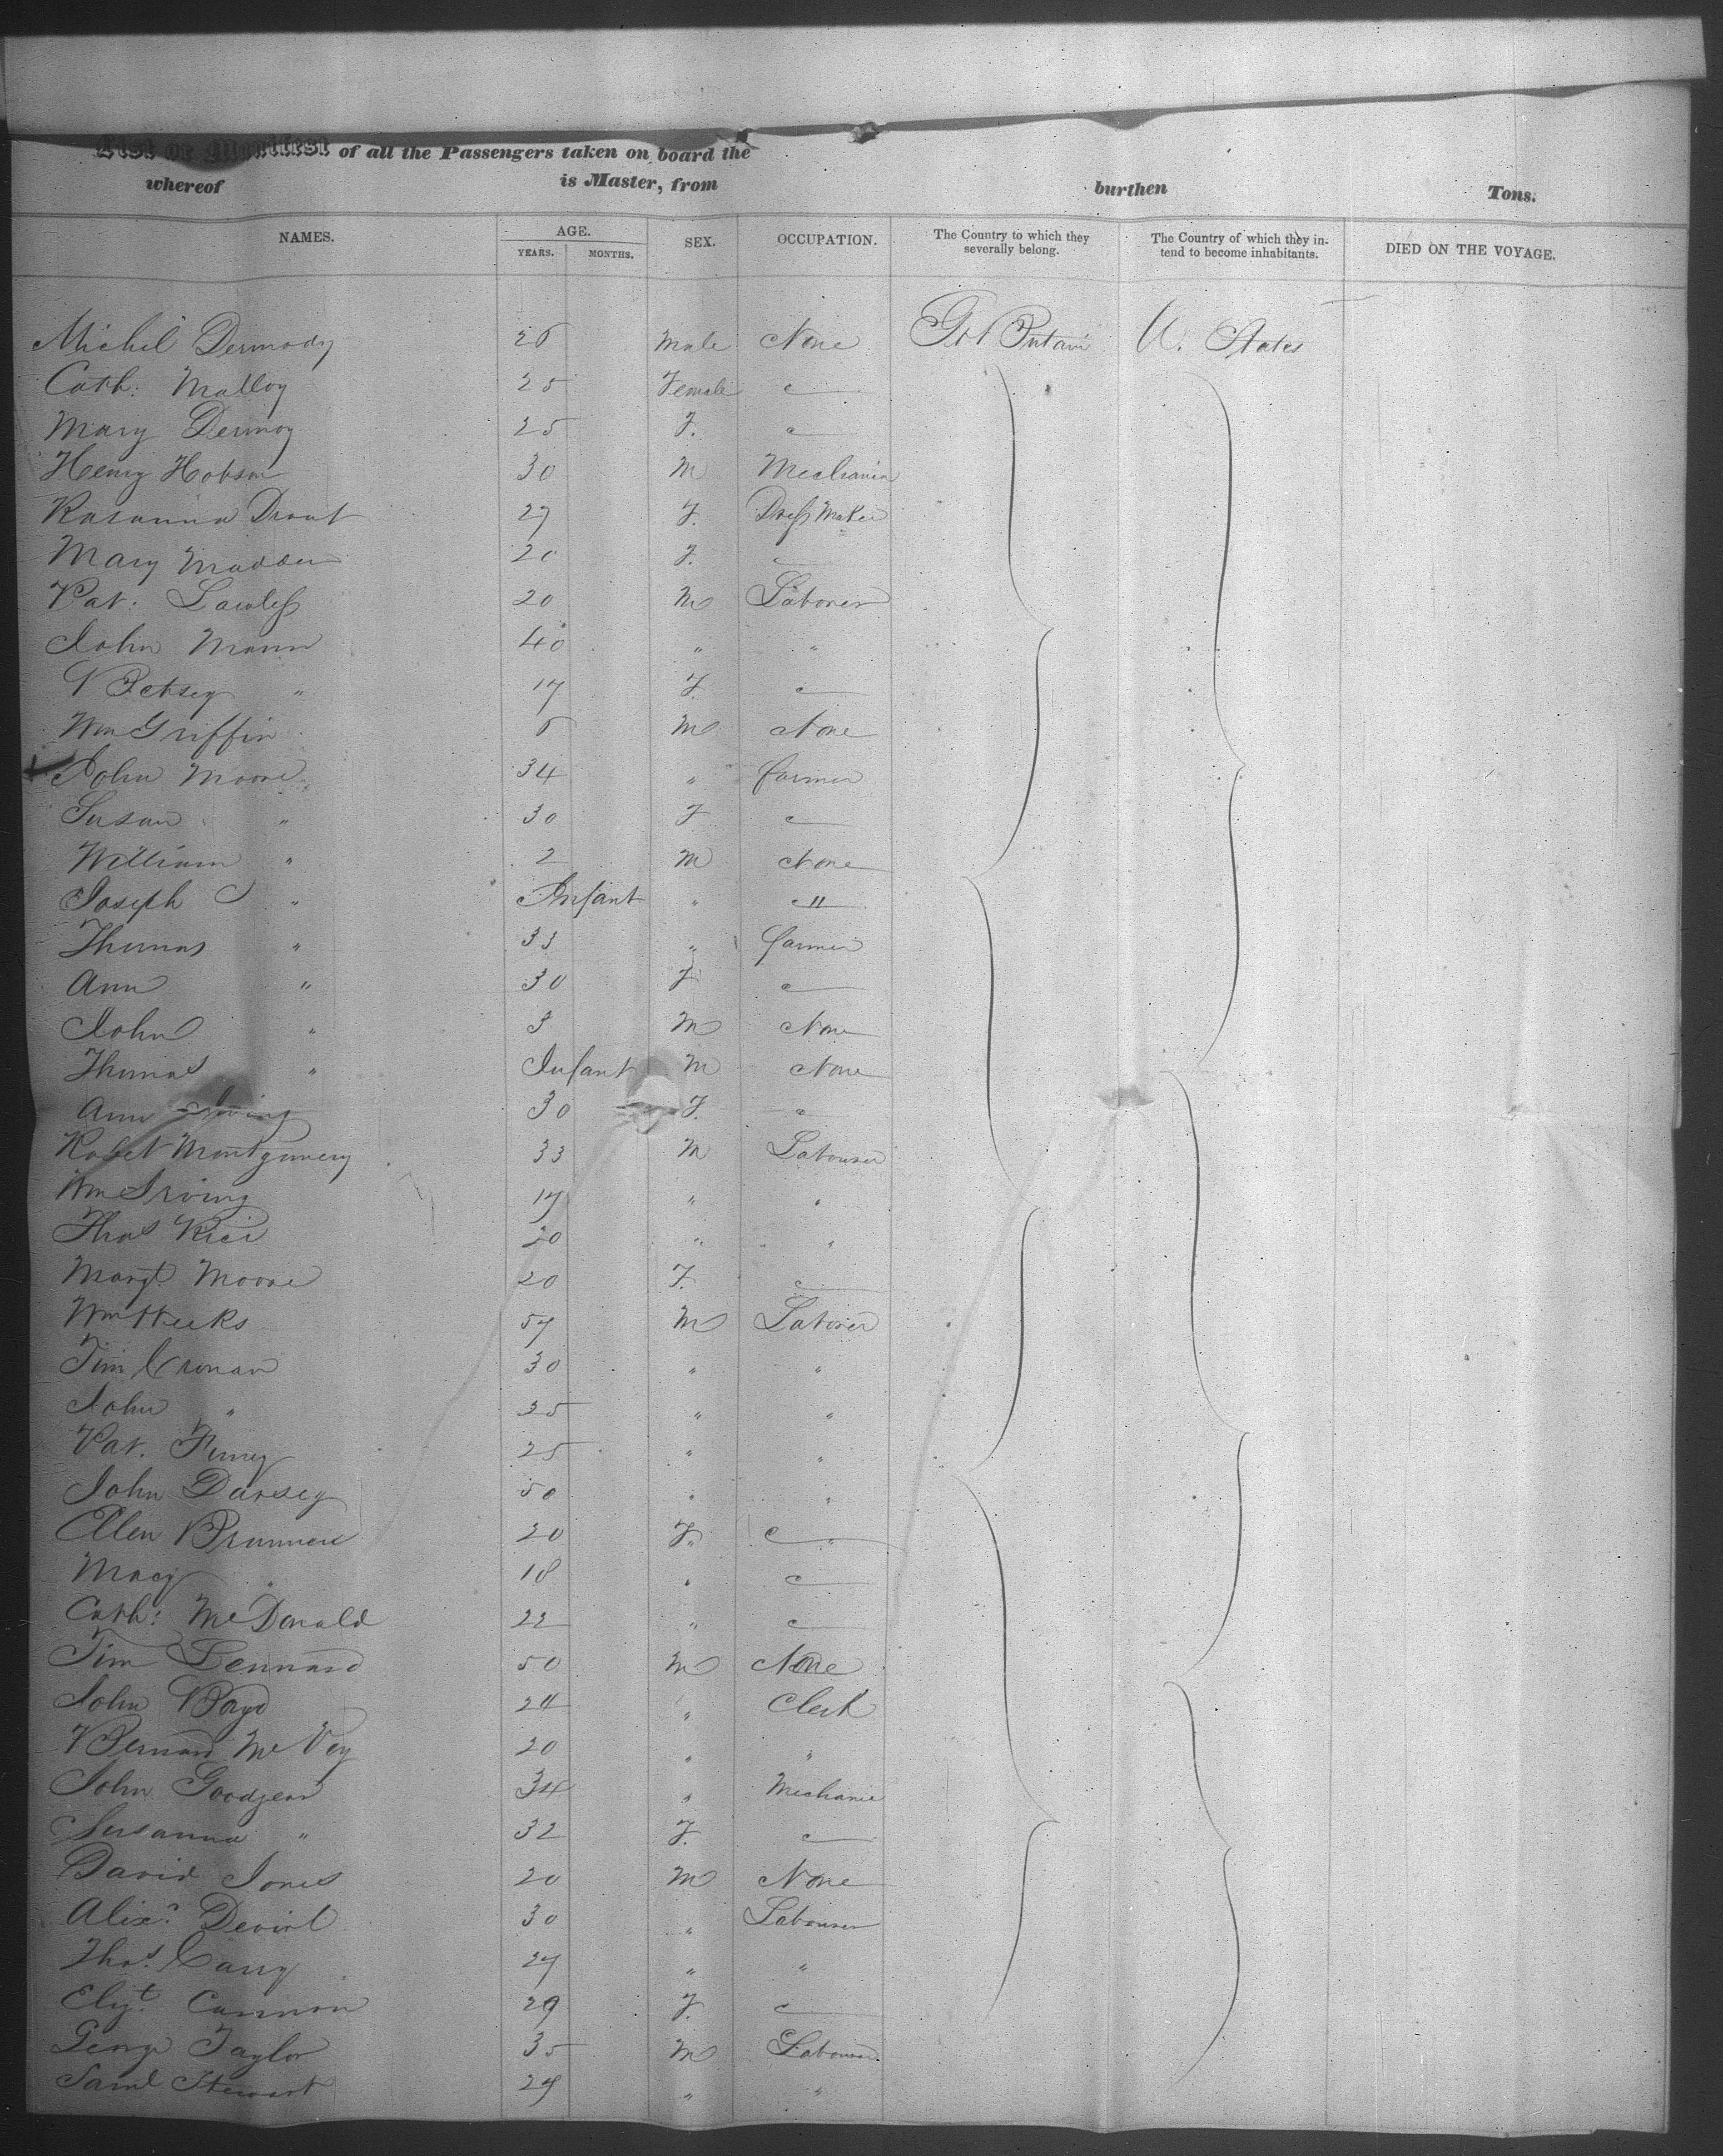 List or Manifest of all the Passengers taken on board the
whereof is Master, from burthen Tons.
NAMES. AGE. YEARS. MONTHS. SEX. OCCUPATION. The Country to which they severally belong. The Country of which they intend to become inhabitants. DIED ON THE VOYAGE.
Michel Dermody 26 Male None Gt Britain U. States
Cath: Malloy 25 Female —
Mary Dermoy 25 F. —
Henry Hobson 30 M Mechanic
Rosanna Drout 27 F. Dress Maker
Mary Madden 20 F. —
Pat. Lawless 20 M Laborer
John Mann 40 " "
Betsey " 17 F. —
Wm Griffin 6 M None
John Moore 34 " farmer
Susan " 30 F —
William " 2 M None
Joseph S " Infant " "
Thomas " 33 " farmer
Ann " 30 F —
John " 3 M None
Thomas " Infant M None
Ann Irving 30 F. —
Robet Montgomery 33 M Labourer
Wm Irving 17 " "
Thos Rice 20 " "
Margt Moore 20 F. —
Wm Heeks 57 M Laborer
Tim Cronan 30 " "
John " 35 " "
Pat. Finney 25 " "
John Darsey 50 " "
Ellen 20 F. —
Mary " 18 " —
Cath: McDonald 22 " —
Tim Lennard 50 M None
John Boyd 24 " Clerk
Bernard McVey 20 " "
John Goodgear 34 " Mechanic
Susanna " 32 F. —
David Jones 20 M None
Alixr. 30 " Labourer
Thos. Carry 27 " "
Elizt. Cannon 29 F. —
George Taylor 35 M Labourer
Saml Stewart 27 " "